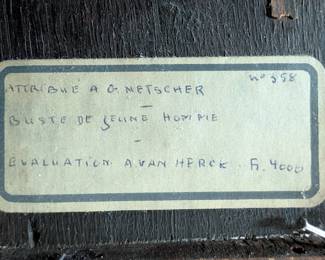 No 358
ATTRIBUÉ A G. NETSCHER
—
BUSTE DE JEUNE HOMME
-
EVALUATION A. VAN HERCK. Fr. 4000